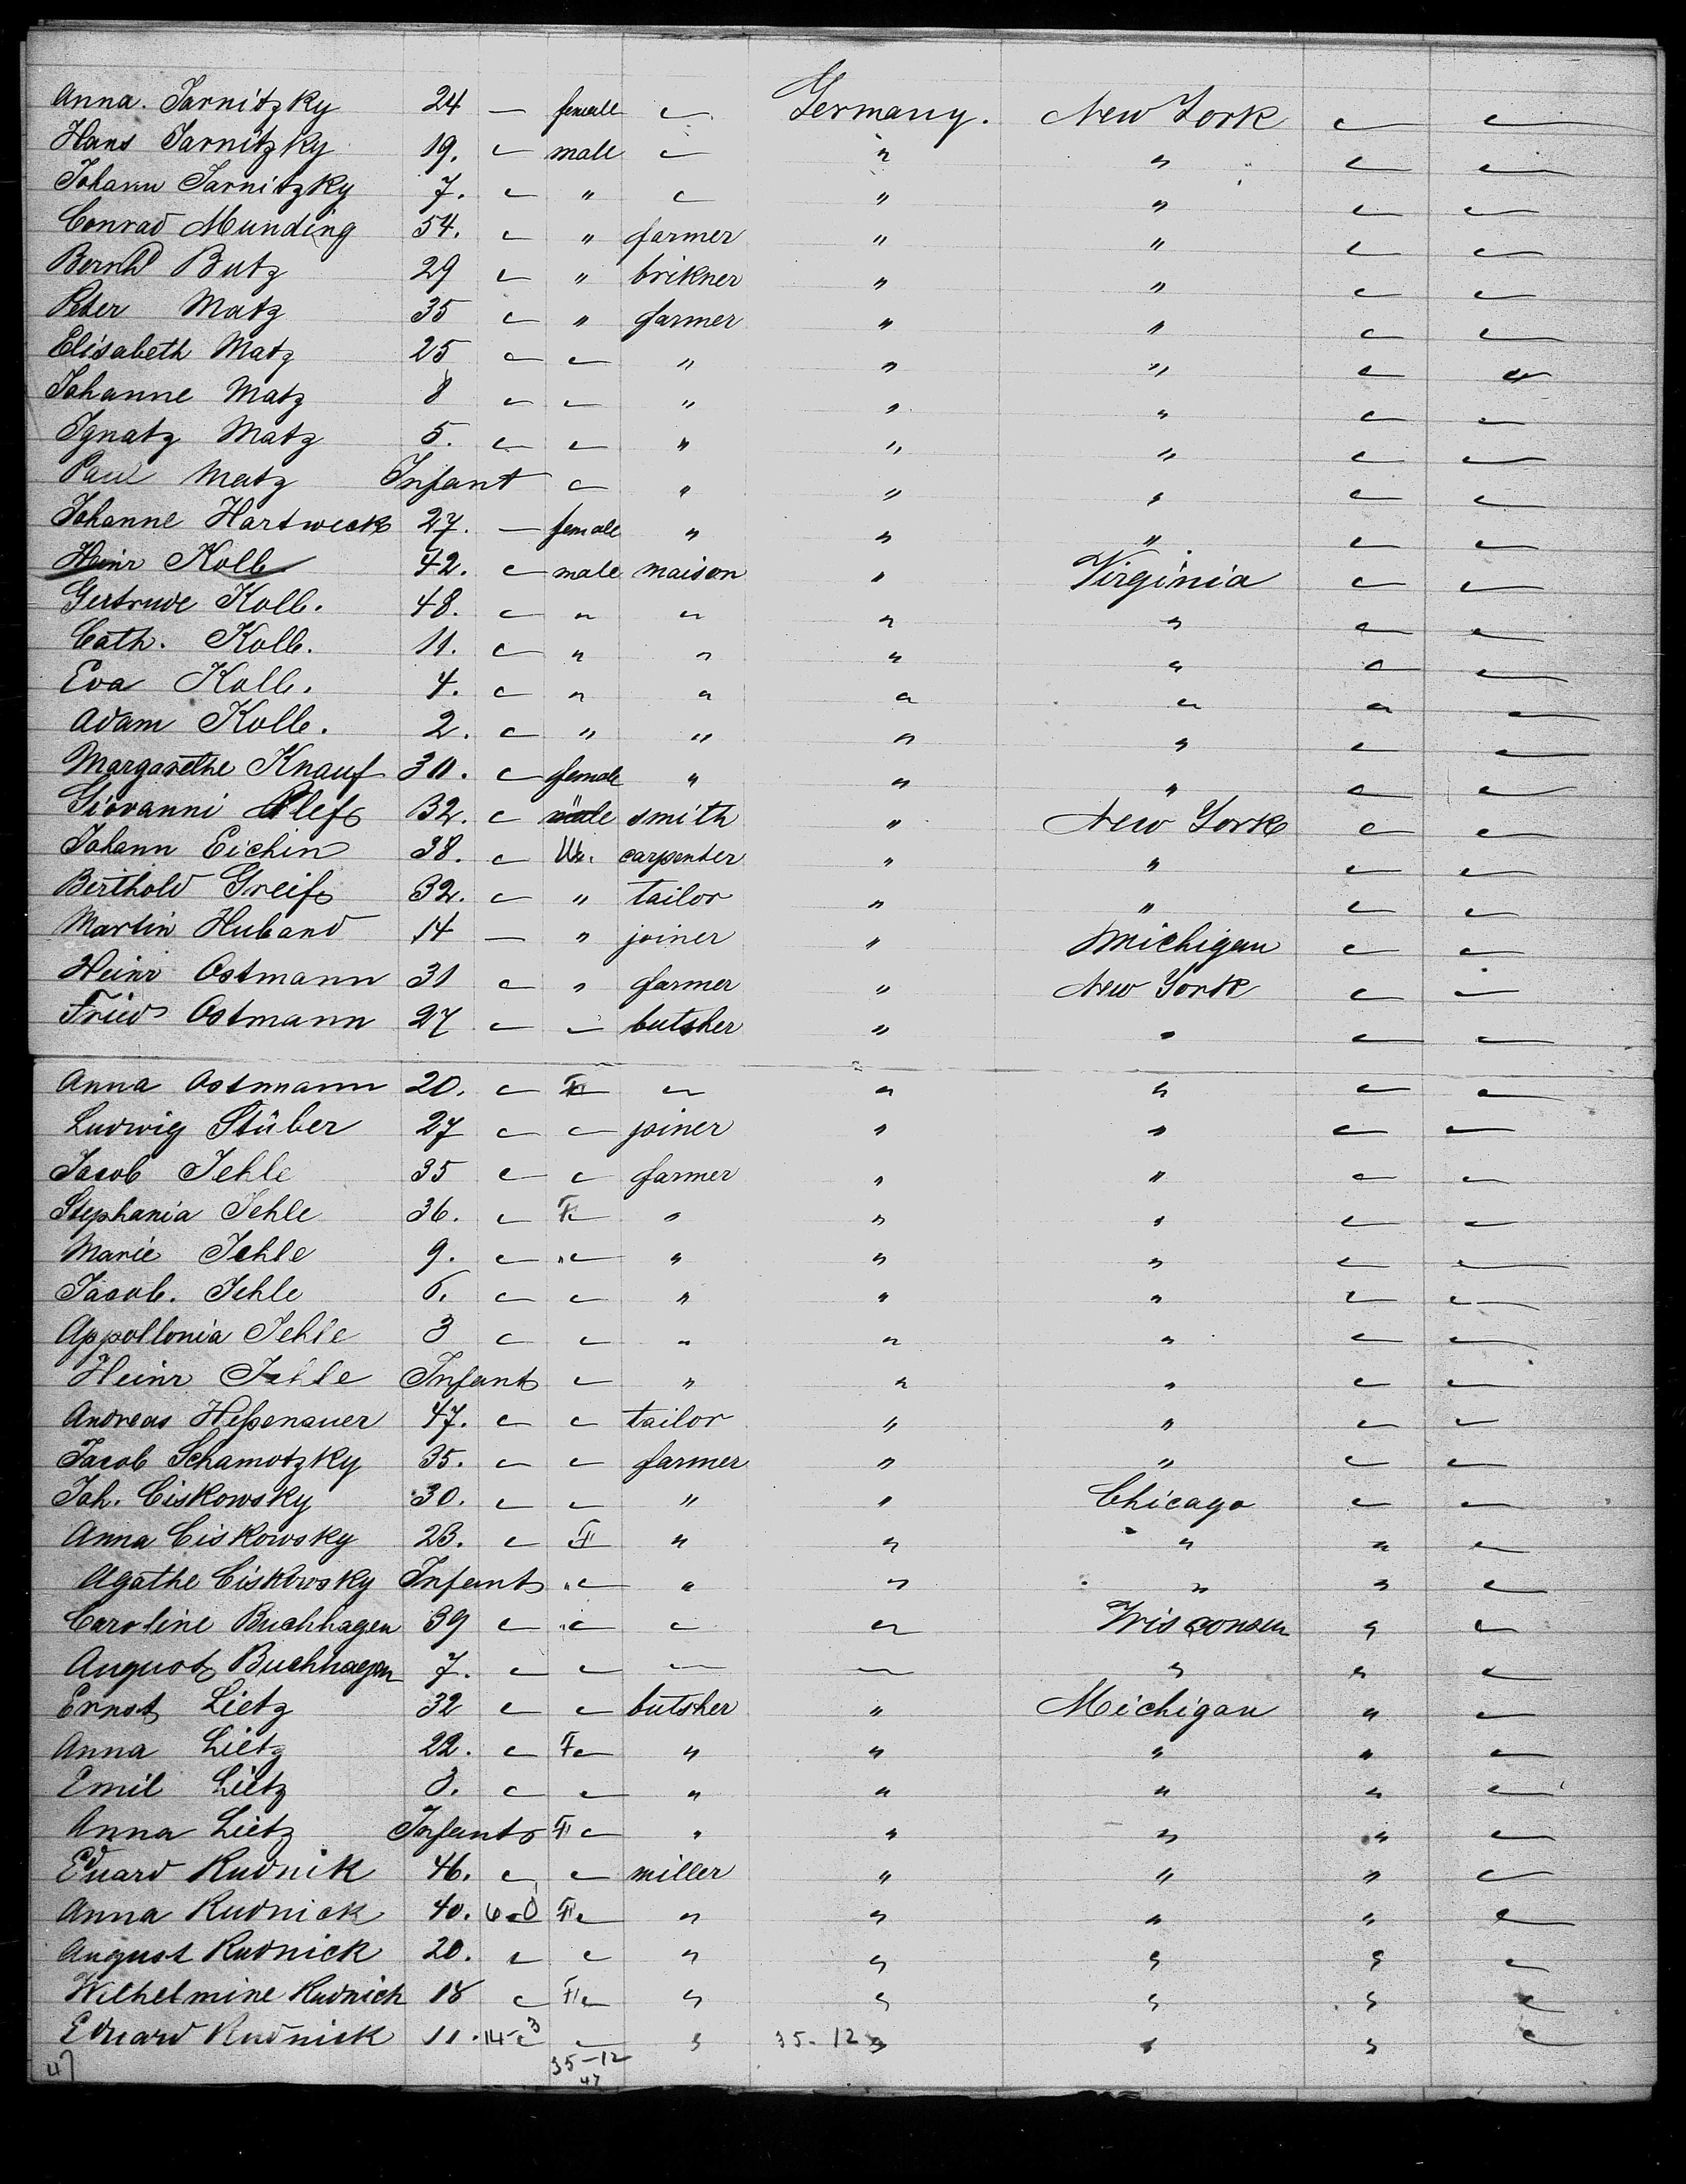 Anna. Jarnitzky 24 — female — Germany. New York — —
Hans Jarnitzky 19. — male — " " — —
Johann Jarnitzky 7. — " — " " — —
Conrad Munding 54. — " farmer " " — —
Bernhd Butz 29 — " brikner " " — —
Peter Matz 35 — " farmer " " — —
Elisabeth Matz 25 — — " " " — —
Johanne Matz 8 — — " " " — —
Ignatz Matz 5. — — " " " — —
Paul Matz Infant — " " " — —
Johanne Hartweck 27. — female " " " — —
Heinr Kolb 42. — male maison " Virginia — —
Gertrude Kolb. 48. — " " " " — —
Cath. Kolb. 11. — " " " " — —
Eva Kolb. 4. — " " " " " —
Adam Kolb. 2. — " " " " — —
Margarethe Knauf 30. — female " " " — —
Giovanni 32. — male smith " New York — —
Johann Eichin 38. — M. carpenter " " — —
Berthold Greif 32. — " tailor " " — —
Martin Huband 14 — " joiner " Michigan — —
Heinr Ostmann 31 — " farmer " New York — —
Fried Ostmann 27 — — butsher " " — —
Anna Ostmann 20. — F — " " — —
Ludwig Stüber 27 — — joiner " " — —
Jacob Jehle 35 — — farmer " " — —
Stephania Jehle 36. — F " " " — —
Marie Jehle 9. — " " " " — —
Jacob. Jehle 6. — — " " " — —
Appollonia Jehle 3 — — " " " — —
Heinr Jehle Infant — " " " — —
Andreas Heßenauer 47. — — tailor " " — —
Jacob Schamotzky 35. — — farmer " " — —
Joh. Ciskowsky 30. — — " " Chicago — —
Anna Ciskowsky 23. — F " " " " —
Agathe Ciskowsky Infant " " " " " —
Caroline Buchhagen 39 — " — — Wisconsen " —
August Buchhagen 7. — — — — " " —
Ernst Lietz 32 — — butsher " Michigan " —
Anna Lietz 22. — F " " " " —
Emil Lietz 3. — — " " " " —
Anna Lietz Infant F " " " " —
Eduard Rudnik 46. — — miller " " " —
Anna Rudnick 40. 6-0 F " " " " —
August Rudnick 20. — — " " " " —
Wilhelmine Rudnick 18 — F " " " " —
Eduard Rudnick 11. 14-3 — " 35-12 " " " —
47 35-12
47